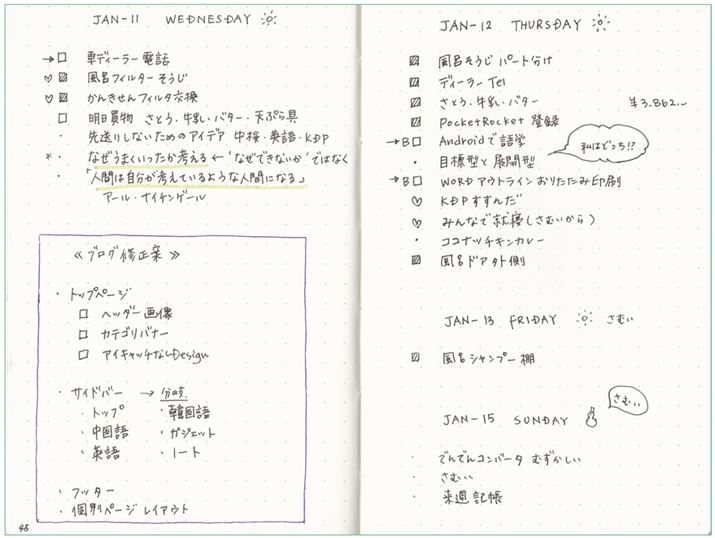 JAN-11 WEDNESDAY
→ □ 車ディーラー 電話
♡ ☒ 風呂フィルターそうじ
♡ ☒ かんきせんフィルタ交換
□ 明日買物 さとう・牛乳・バター・天ぷら具
・ 先送りしないためのアイデア 中検・英語・KDP
* ・ なぜうまくいったか考える ← 'なぜできないか'ではなく
・ 「人間は自分が考えているような人間になる」
アール・ナイチンゲール
≪ブログ修正案≫
・トップページ
□ ヘッダー画像
□ カテゴリバナー
□ アイキャッチなしDesign
・サイドバー → 分ける
・トップ ・韓国語
・中国語 ・ガジェット
・英語 ・ノート
・フッター
・個別ページ レイアウト
45
JAN-12 THURSDAY
☒ 風呂そうじ パート分け
☒ ディーラー Tel
☒ さとう・牛乳・バター ¥3.862.-
☒ PocketRocket 登録
→ B□ Androidで語学
・ 目標型と展開型
私はどっち!?
→ B□ WORDアウトラインおりたたみ印刷
♡ KDPすすんだ
♡ みんなで就寝(さむいから)
・ ココナッツチキンカレー
☒ 風呂ドア外側
JAN-13 FRIDAY さむい
☒ 風呂シャンプー棚
JAN-15 SUNDAY
さむい
・ でんでんコンバータ むずかしい
・ さむい
・ 来週記帳